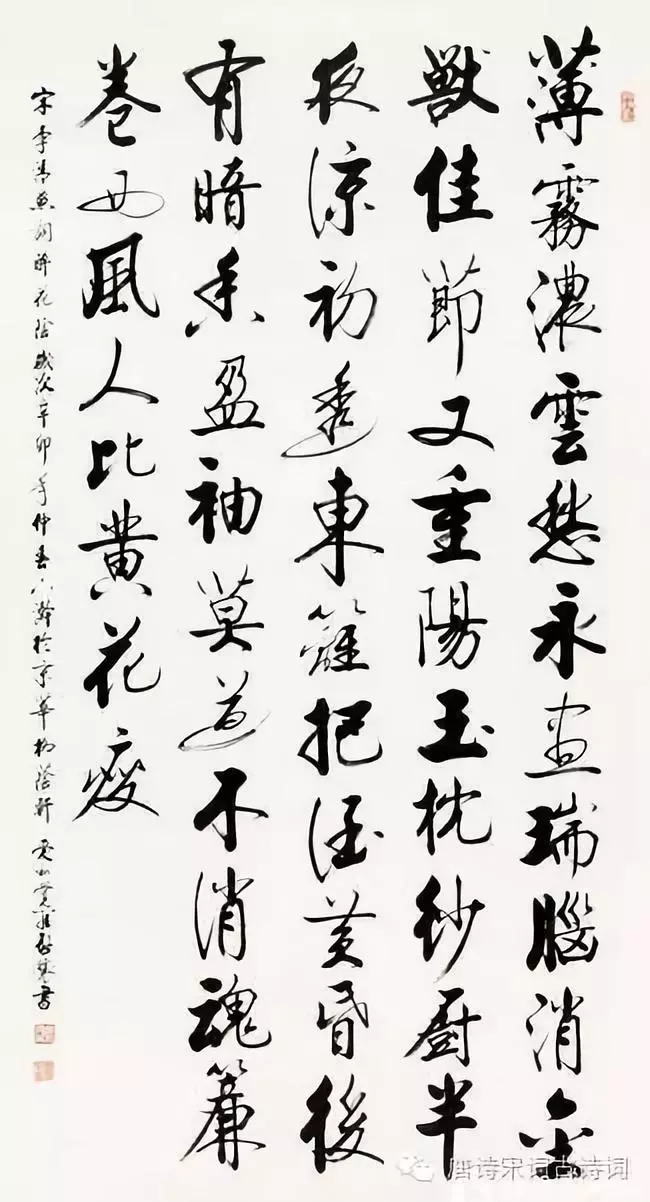 薄霧濃雲愁永晝瑞腦消金
獸佳節又重陽玉枕紗厨半
夜涼初透東籬把酒黃昏後
有暗香盈袖莫道不消魂簾
卷西風人比黃花瘦
宋李清照詞醉花陰歲次辛卯年仲春於京華柳蔭軒書
唐诗宋词古诗词